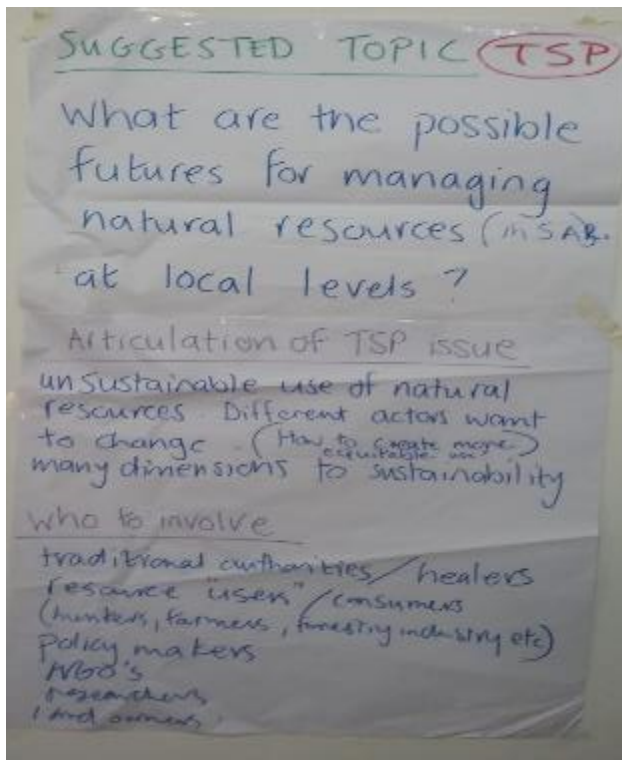 SUGGESTED TOPIC TSP
What are the possible
futures for managing
natural resources (in SAB.
at local levels ?
Articulation of TSP issue
unsustainable use of natural
resources. Different actors want
to change. (How to create more
equitable use)
many dimensions to sustainability
Who to involve
traditional authorities/healers
resource "users"/consumers
(hunters, farmers, forestry industry etc)
policy makers
NGO's
researchers
land owners.